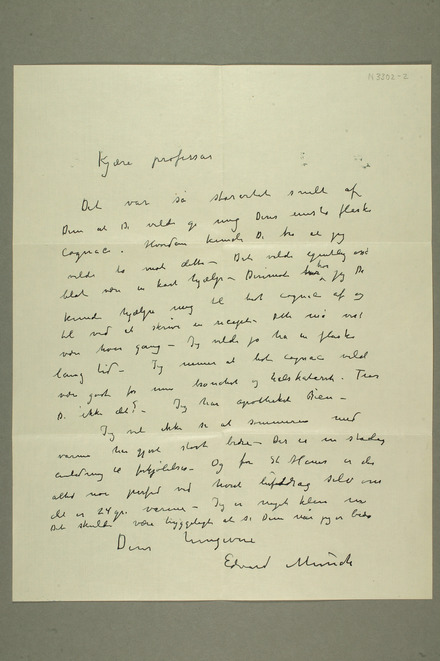 N 3302-2
Kjære professor
Det var så storartet snilt af
Dem at De vilde gi mig Deres eneste flaske
cognac. Hvordan kunde De tro at jeg
vilde ta mod dette – Det vilde egentlig også
blot være en kort hjælp – Derimod jeg De
kunde hjælpe mig til lidt cognac af og
til ved at skrive en recept. Det må vel
være hver gang – Jeg vilde jo ha en flaske
lang tid – Jeg mener at lidt cognac vilde
være godt for min bronchit og halskatarrh. Tror
De ikke det? – Jeg har apotheket
Jeg vil ikke si at sommeren med
varme har gjort stort bedre – Der er en stadig
til forkjølelse – Og for St Hans er der
altid noe ved hvert luftdrag selv om
det er 24 gr. varme – Jeg er noget klein nu
Det skulde være hyggeligt at se Dem når jeg er bedre
Deres hengivne
Edvard Munch